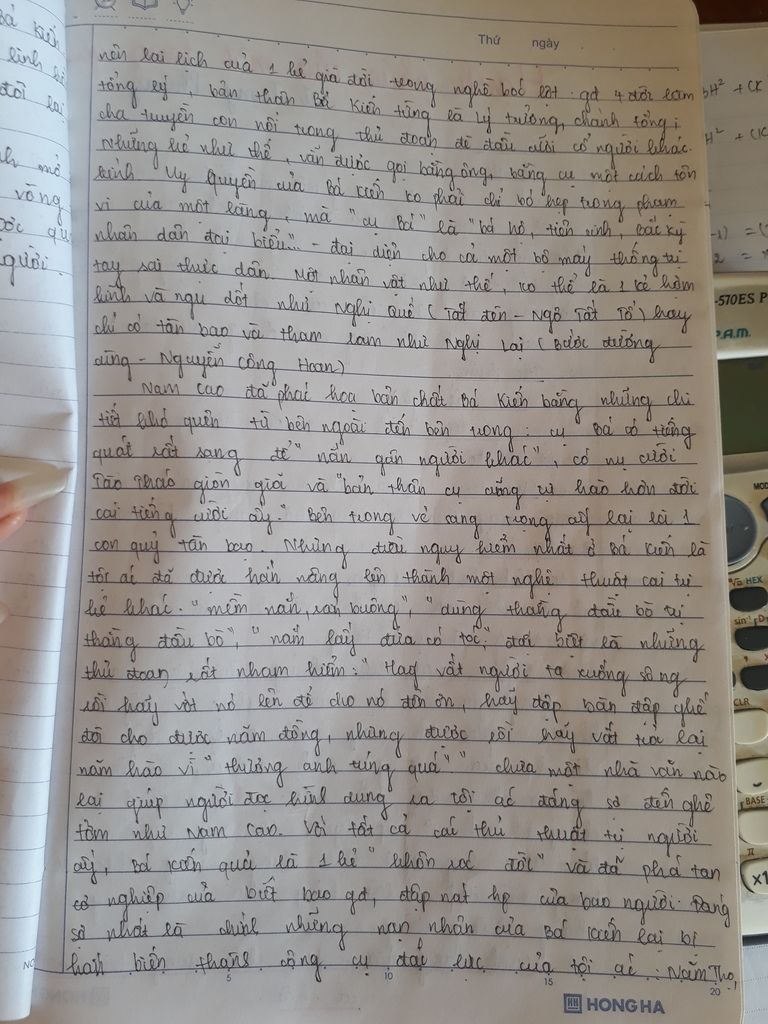 Bá Kiến
Thứ ngày
nên lai lịch của 1 kẻ già đời trong nghề bóc lột: gđ 4 đời làm
tổng lý, bản thân Bá Kiến từng là lý trưởng, chánh tổng;
cha truyền con nối trong thủ đoạn đè đầu cưỡi cổ người khác.
Những kẻ như thế, vẫn được gọi bằng ông, bằng cụ một cách tôn
kính. Uy quyền của Bá Kiến ko phải chỉ bó hẹp trong phạm
vi của một làng, mà "cụ Bá" là "bá hộ, tiên chỉ, Bắc kỳ
nhân dân đại biểu"... - đại diện cho cả một bộ máy thống trị
tay sai thực dân. Một nhân vật như thế, ko thể là 1 kẻ hợm
hĩnh và ngu dốt như Nghị Quế (Tắt đèn - Ngô Tất Tố) hay
chỉ có tàn bạo và tham lam như Nghị Lại (Bước đường
cùng - Nguyễn Công Hoan)
Nam Cao đã phác họa bản chất Bá Kiến bằng những chi
tiết khó quên từ bên ngoài đến bên trong: cụ Bá có tiếng
quát rất sang để "nắn gân người khác", có nụ cười
Tào Tháo giòn giã và "bản thân cụ cũng tự hào hơn đời
cái tiếng cười ấy." Bên trong vẻ sang trọng ấy lại là 1
con quỷ tàn bạo. Nhưng điều nguy hiểm nhất ở Bá Kiến là
tội ác đã được hắn nâng lên thành một nghệ thuật cai trị
kẻ khác. "mềm nắn, rắn buông", "dùng thằng đầu bò trị
thằng đầu bò", "nắm lấy đứa có tóc", đặc biệt là những
thủ đoạn rất nham hiểm: "Hay vất người ta xuống sông
rồi hãy vớt nó lên để cho nó đền ơn, hãy đập bàn đập ghế
đòi cho được năm đồng, nhưng được rồi hãy vất trả lại
năm hào vì "thương anh túng quá" " chưa một nhà văn nào
lại giúp người đọc hình dung ra tội ác đáng sợ đến ghê
tởm như Nam Cao. Với tất cả cái thủ thuật trị người
ấy, Bá Kiến quả là 1 kẻ "khôn róc đời" và đã phá tan
cơ nghiệp của biết bao gđ, đập nát hp của bao người. Đáng
sợ nhất là chính những nạn nhân của Bá Kiến lại bị
hắn biến thành công cụ đắc lực của tội ác: Năm Thọ,
5 10 15 20
HONG HA
-570ES P
P.A.M.
MOD
HEX
sin⁻¹
CLR
BASE
π
x1